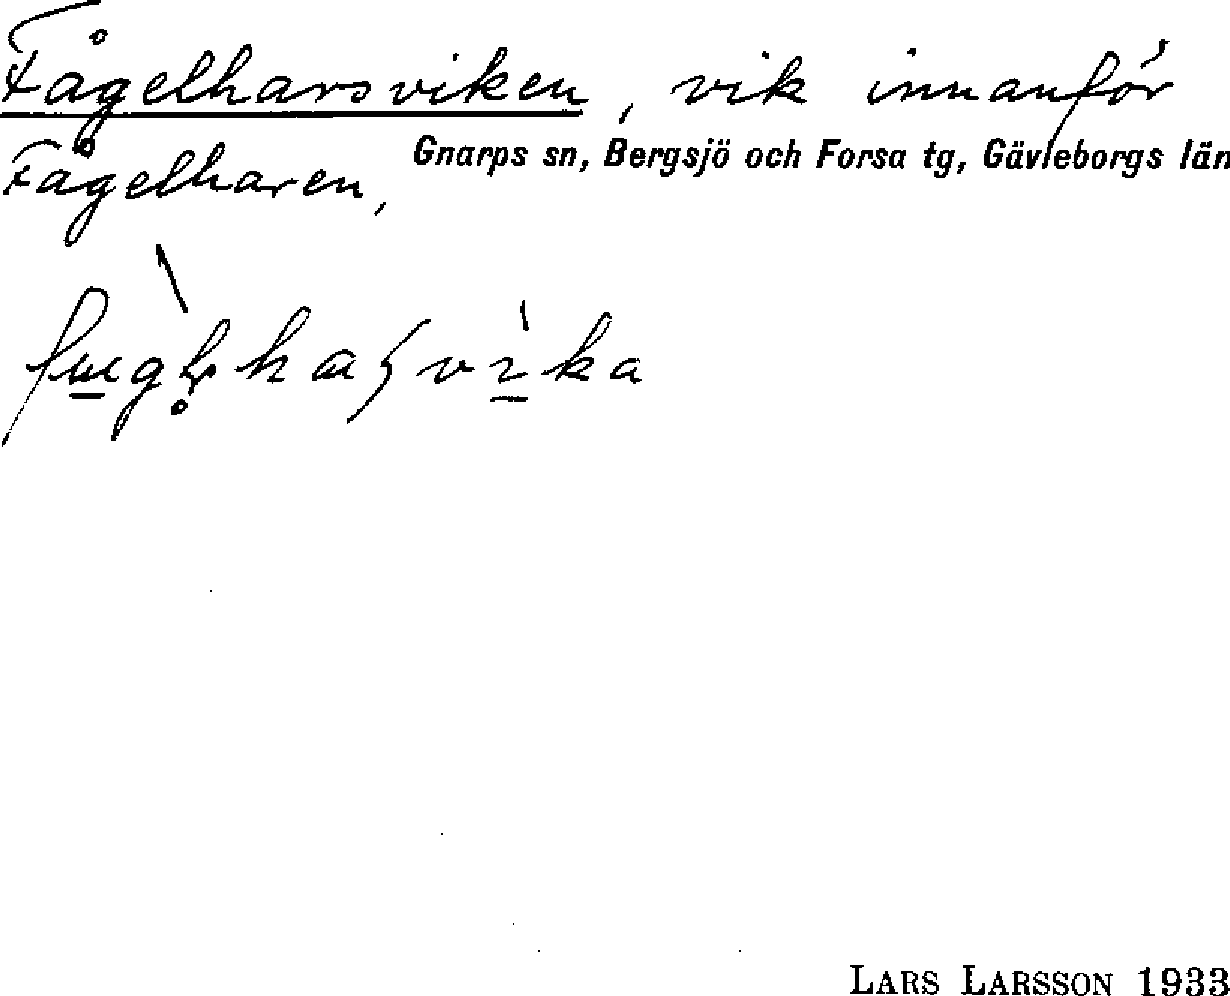 Fågelharsviken, vik innanför
Gnarps sn, Bergsjö och Forsa tg, Gävleborgs län
Fågelharen,
LARS LARSSON 1933